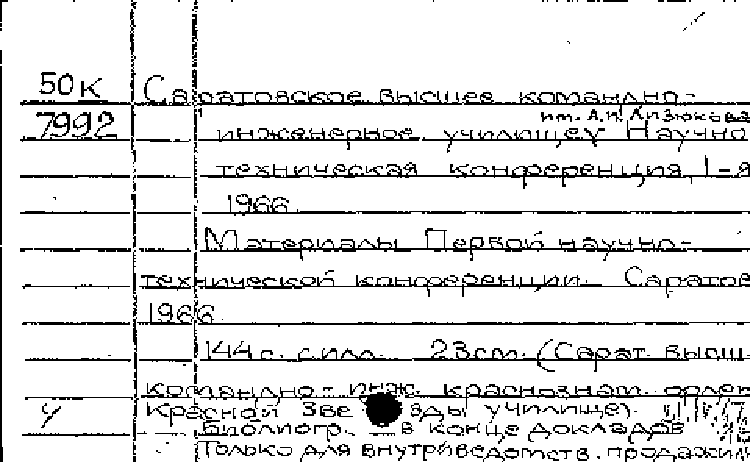 50К Саратовское высшее командно-
им. А.И. Лизюкова
7992 инженерное училище. Научно
техническая конференция, I-я
1966
Материалы Первой научно-
технической конференции. Саратов
1966
144 с. с илл. 23 см. (Сарат. высш.
командно-инж. краснознам. орден
Красной Звезды училище).
Библиогр. в конце докладов
Только для внутриведомств. продажи